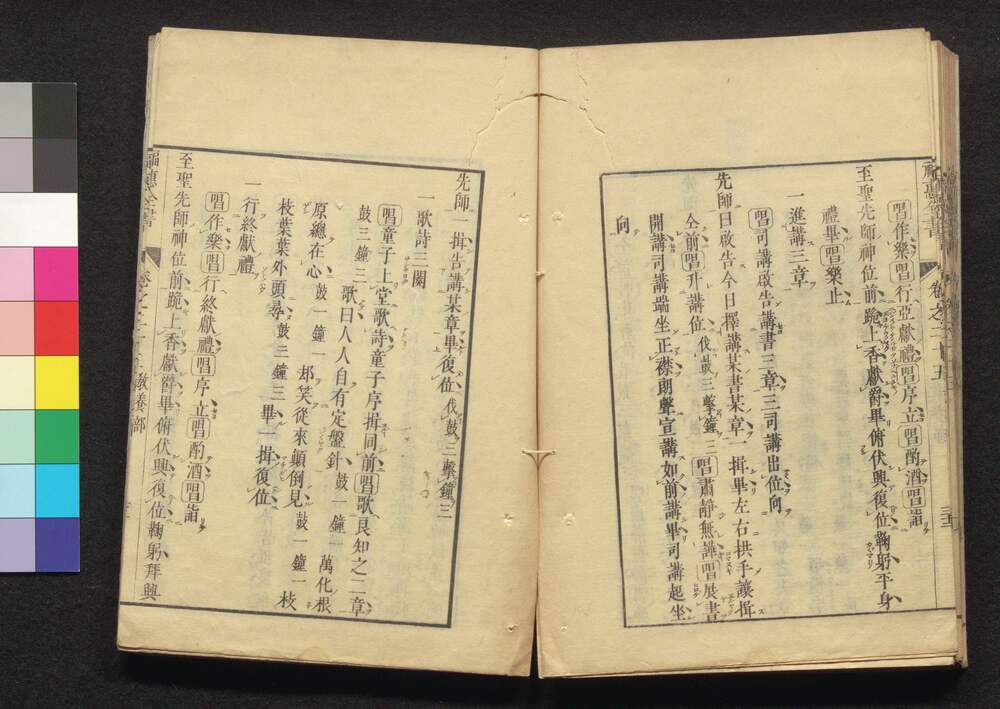 福惠全書 卷之二十五
唱作樂唱行亞獻禮唱序立唱酌酒唱詣
至聖先師神位前跪上香獻爵畢俯伏興復位鞠躬平身
禮畢唱樂止
一進講三章
唱司講啟告講書三章三司講出位向
先師曰啟告今日擇講某書某章一揖畢左右拱手讓揖
仝前唱升講位伐鼓三擊鐘三唱肅靜無譁唱展書
開講司講端坐正襟朗聲宣講如前講畢司講起坐
向
先師一揖告講某章畢復位伐鼓三擊鐘三
一歌詩三闋
唱童子上堂歌詩童子序揖同前唱歌良知之二章
鼓三鐘三歌曰人人自有定盤針鼓一鐘一萬化根
原總在心鼓一鐘一却笑從來顛倒見鼓一鐘一枝
枝葉葉外頭尋鼓三鐘三畢一揖復位
一行終獻禮
唱作樂唱行終獻禮唱序立唱酌酒唱詣
至聖先師神位前跪上香獻爵畢俯伏興復位鞠躬拜興
福惠全書 卷之二十五 教養部